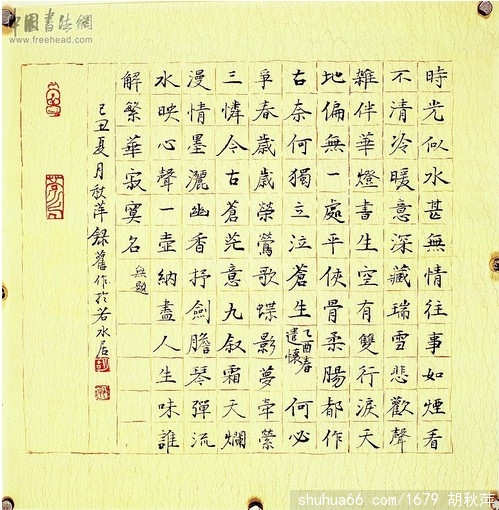 中國書法網
www.freehead.com
時光似水甚無情往事如煙看
不清冷暖意深藏瑞雪悲歡聲
雜伴華燈書生空有雙行淚天
地偏無一處平俠骨柔腸都作
古奈何獨立泣蒼生乙酉春遣懷何必
爭春歲歲榮鶯歌蝶影夢牽縈
三憐今古蒼茫意九叙霜天爛
漫情墨灑幽香抒劍膽琴彈流
水映心聲一壺納盡人生味誰
解繁華寂寞名無題
己丑夏月秋萍錄舊作於若水居
shuhua66.com/1679 胡秋萍